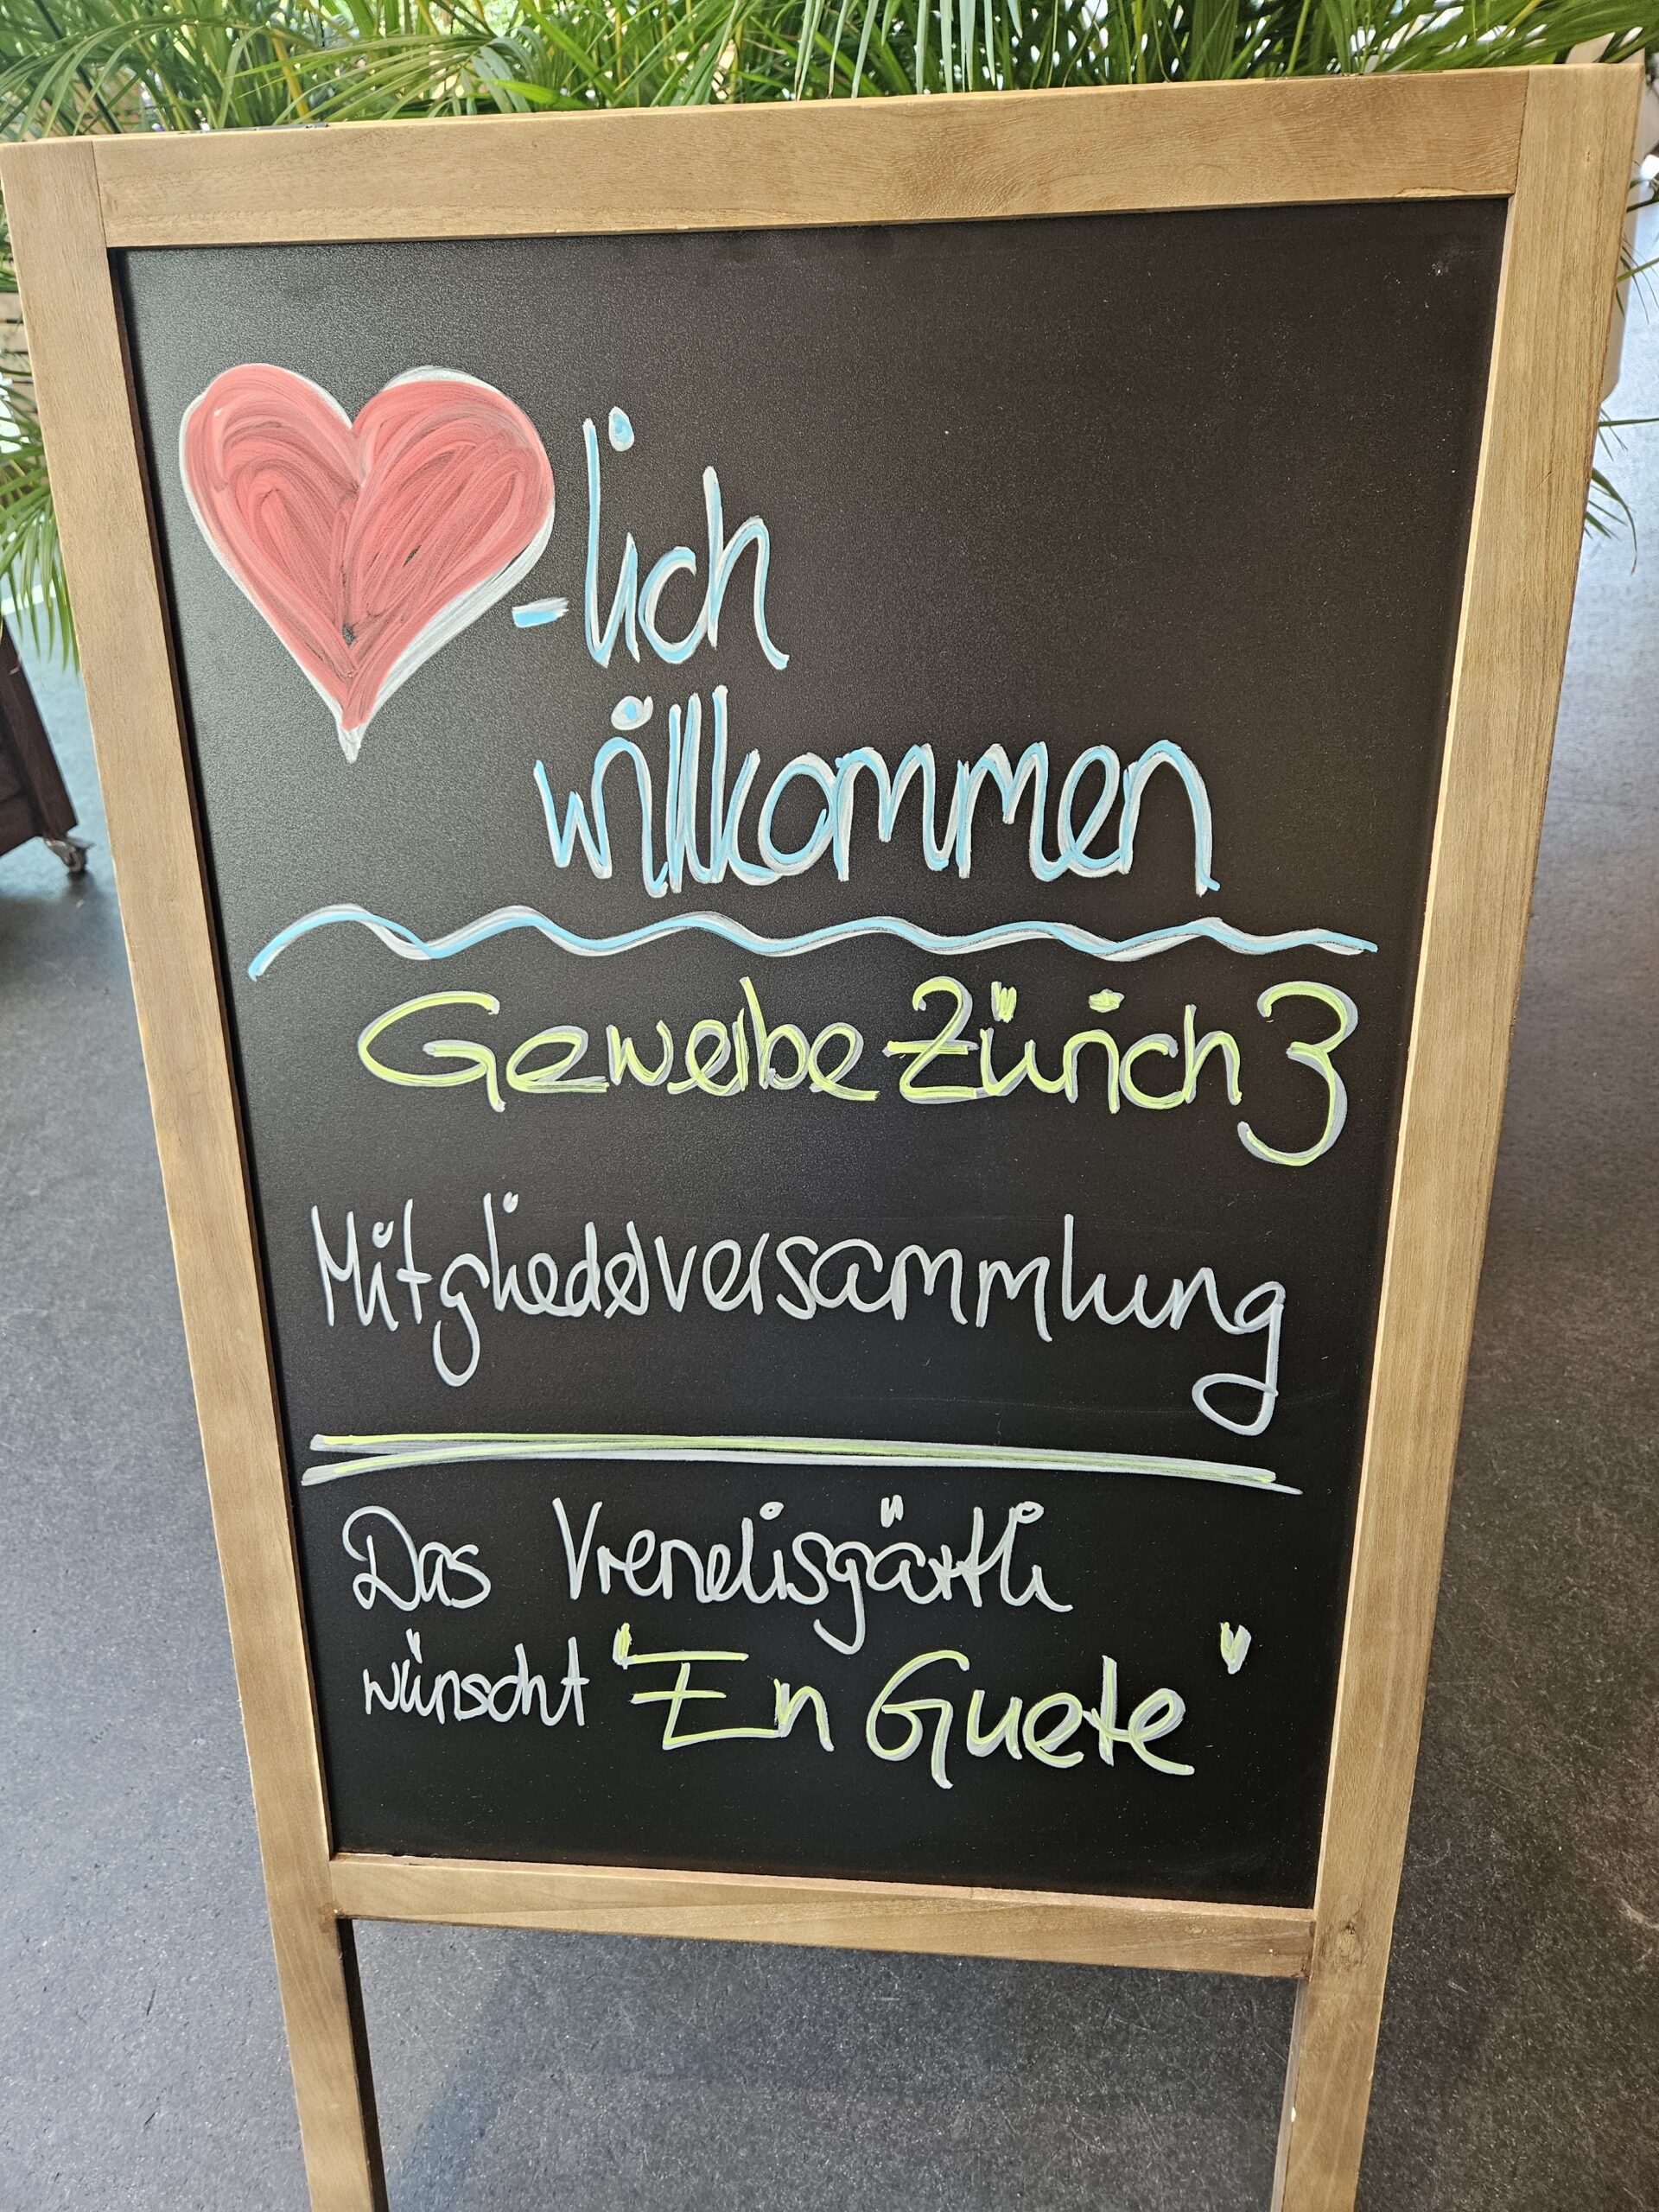 -lich
willkommen
Gewerbe Zürich 3
Mitgliedsversammlung
Das Vrenelisgärtli
wünscht "En Guete"